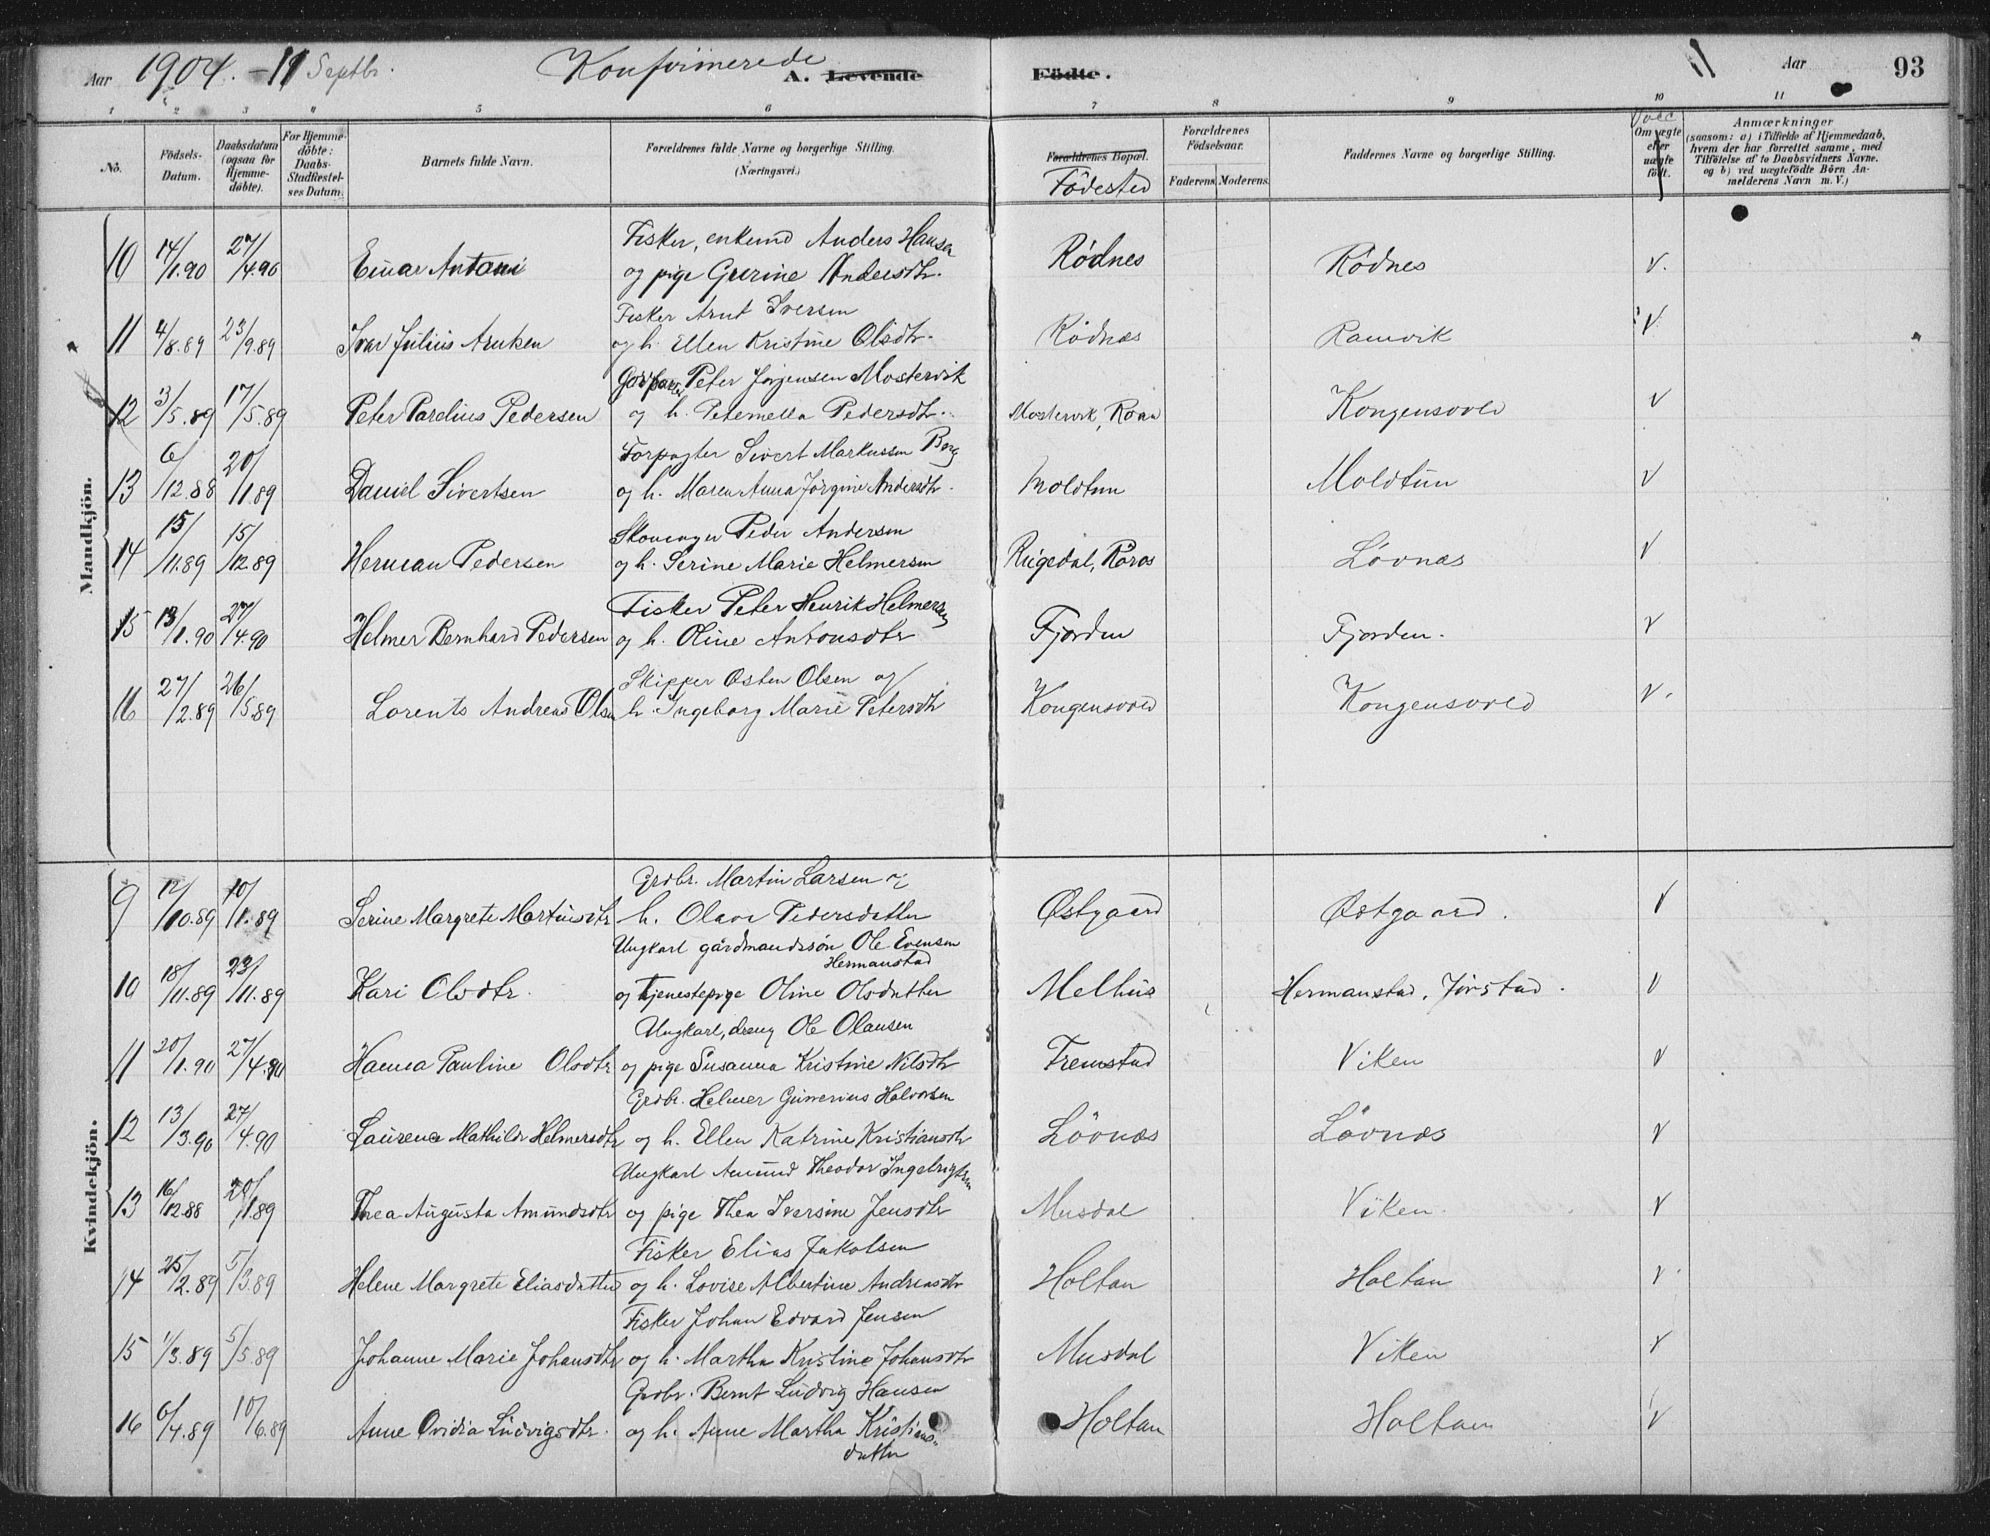 Aar 1904. - 11 Septbr. Konfirmerede A. Levende Födte. Aar 93
1 2 3 4 5 6 7 8 9 10 11
No. Födsels-Datum. Daabsdatum (ogsaa for Hjemme-döbte). For Hjemme-döbte: Daabs-Stadfæstel-ses Datum. Barnets fulde Navn. Forældrenes fulde Navne og borgerlige Stilling. (Næringsvei.) Forældrenes Bopæl. Födested Forældrenes Födselsaar. Faderens. Moderens. Faddernes Navne og borgerlige Stilling. Om ægte eller uægte födt. Anmærkninger (saasom: a) i Tilfælde af Hjemmedaab, hvem der har forrettet samme, med Tilföielse af to Daabsvidners Navne, og b) ved uægtefödte Börn An-melderens Navn m. V.)
Mandkjön.
Fisker, enkemd Anders Hansen
10 14/1.90 27/4.90 Einar Antoni og pige Gurine Andersdtr. Rødnes Rödnes V.
Fisker Arnt Iversen
11 4/8.89 23/9.89 Ivar Julius Arntsen og h. Ellen Kristine Olsdtr. Rödnæs Ramvik V
Peter Jørgensen Mostervik
12 3/5.89 17/5.89 Peter Parelius Pedersen og h. Peternella Pedersdtr. Mostervik, Roan Kongensvold V
Forpagter Sivert Markussen Borg
13 6/12.88 20/1.89 Daniel Sivertsen og h. Maren Anna Jörgine Andersdtr. Moldtun Moldtun V
Peder Andersen
14 15/11.89 15/12.89 Herman Pedersen og h. Serine Marie Helmersen Rugedal, Röros Lövnæs V
Fisker Peter Henrik Helmersen
15 13/1.90 27/4.90 Helmer Bernhard Pedersen og h. Oline Antonsdtr Fjorden Fjorden. V
Skipper Østen Olsen og
16 27/2.89 26/5.89 Lorents Andreas Olsen h. Ingeborg Marie Petersdtr Kongensvold Kongensvold V.
Kvindekjön.
Grdbr. Martin Larsen og
9 12/10.89 10/1.89 Serine Margrete Martinsdtr h. Olava Pedersdatter Østgaard Østgaard. V
Ungkarl gårdmandssön Ole Evensen
Hermanstad
10 18/11.89 23/11.89 Kari Olsdtr. og tjenestepige Oline Olsdatter Melhus Hermanstad, Jörstad. V
Ungkarl, dreng Ole Olausen
11 20/1.90 27/4.90 Hanna Pauline Olsdtr og pige Susanna Kristine Nilsdtr Fremstad Viken V
Grdbr. Helmer Gunnerius Halvorsen
12 13/3.90 27/4.90 Laurena Mathilde Helmersdtr og h. Ellen Katrine Kristiansdtr Lövnæs Lövnæs V
Ungkarl Amund Theodor Ingebrigtsen
13 16/12.88 20/1.89 Thea Augusta Amundsdtr og pige Thea Iversine Jensdtr Musdal Viken. V
Fisker Elias Jakobsen
14 25/2.89 5/3.89 Helene Margrete Eliasdatter og h. Lovise Albertine Andreasdtr Holtan Holtan V.
Fisker Johan Edvard Jensen
15 1/3.89 5/5.89 Johanne Marie Johansdtr og h. Martha Kristine Johansdtr Musdal Viken V
Grdbr. Bernt Ludvig Hansen
16 6/4.89 10/6.89 Anne Ovidia Ludvigsdtr. og h. Anne Martha Kristians- Holtan Holtan V
datter